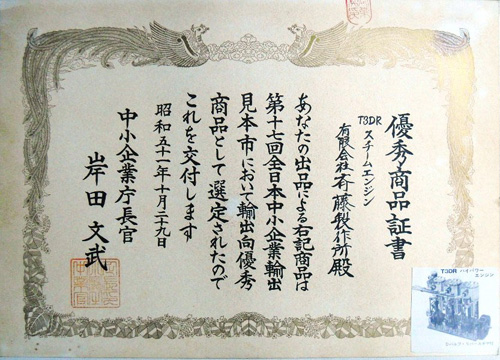 優秀商品証書
T3DR スチームエンジン
有限会社斉藤製作所殿
あなたの出品による右記商品は
第十七回全日本中小企業輸出
見本市において輸出向優秀
商品として選定されたので
これを交付します
昭和五十一年十月二十九日
中小企業庁長官
岸田文武
T3DR ハイパワー
エンジン